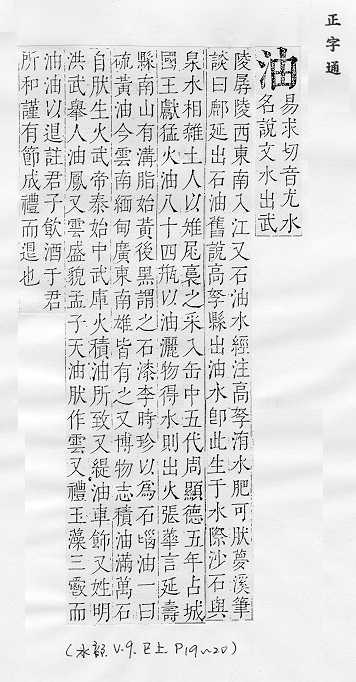 正字通
油 易求切音尤水
名說文水出武
陵孱陵西東南入江又石油水經注高孥洧水肥可肰夢溪筆
談曰鄜延出石油舊說高孥縣出油水卽此生于水際沙石與
泉水相雜土人以雉尾裛之采入缶中五代周顯德五年占城
國王獻猛火油八十四瓶以油灑物得水則出火張華言延壽
縣南山有溝脂始黃後黑謂之石漆李時珍以爲石腦油一曰
硫黃油今雲南緬甸廣東南雄皆有之又博物志積油滿萬石
自肰生火武帝泰始中武庫火積油所致又緹油車飾又姓明
洪武舉人油鳳又雲盛貌孟子天油肰作雲又禮玉藻三爵而
油油以退註君子飮酒于君
所和謹有節成禮而退也
(水部 V.9. 巳上 P19~20)